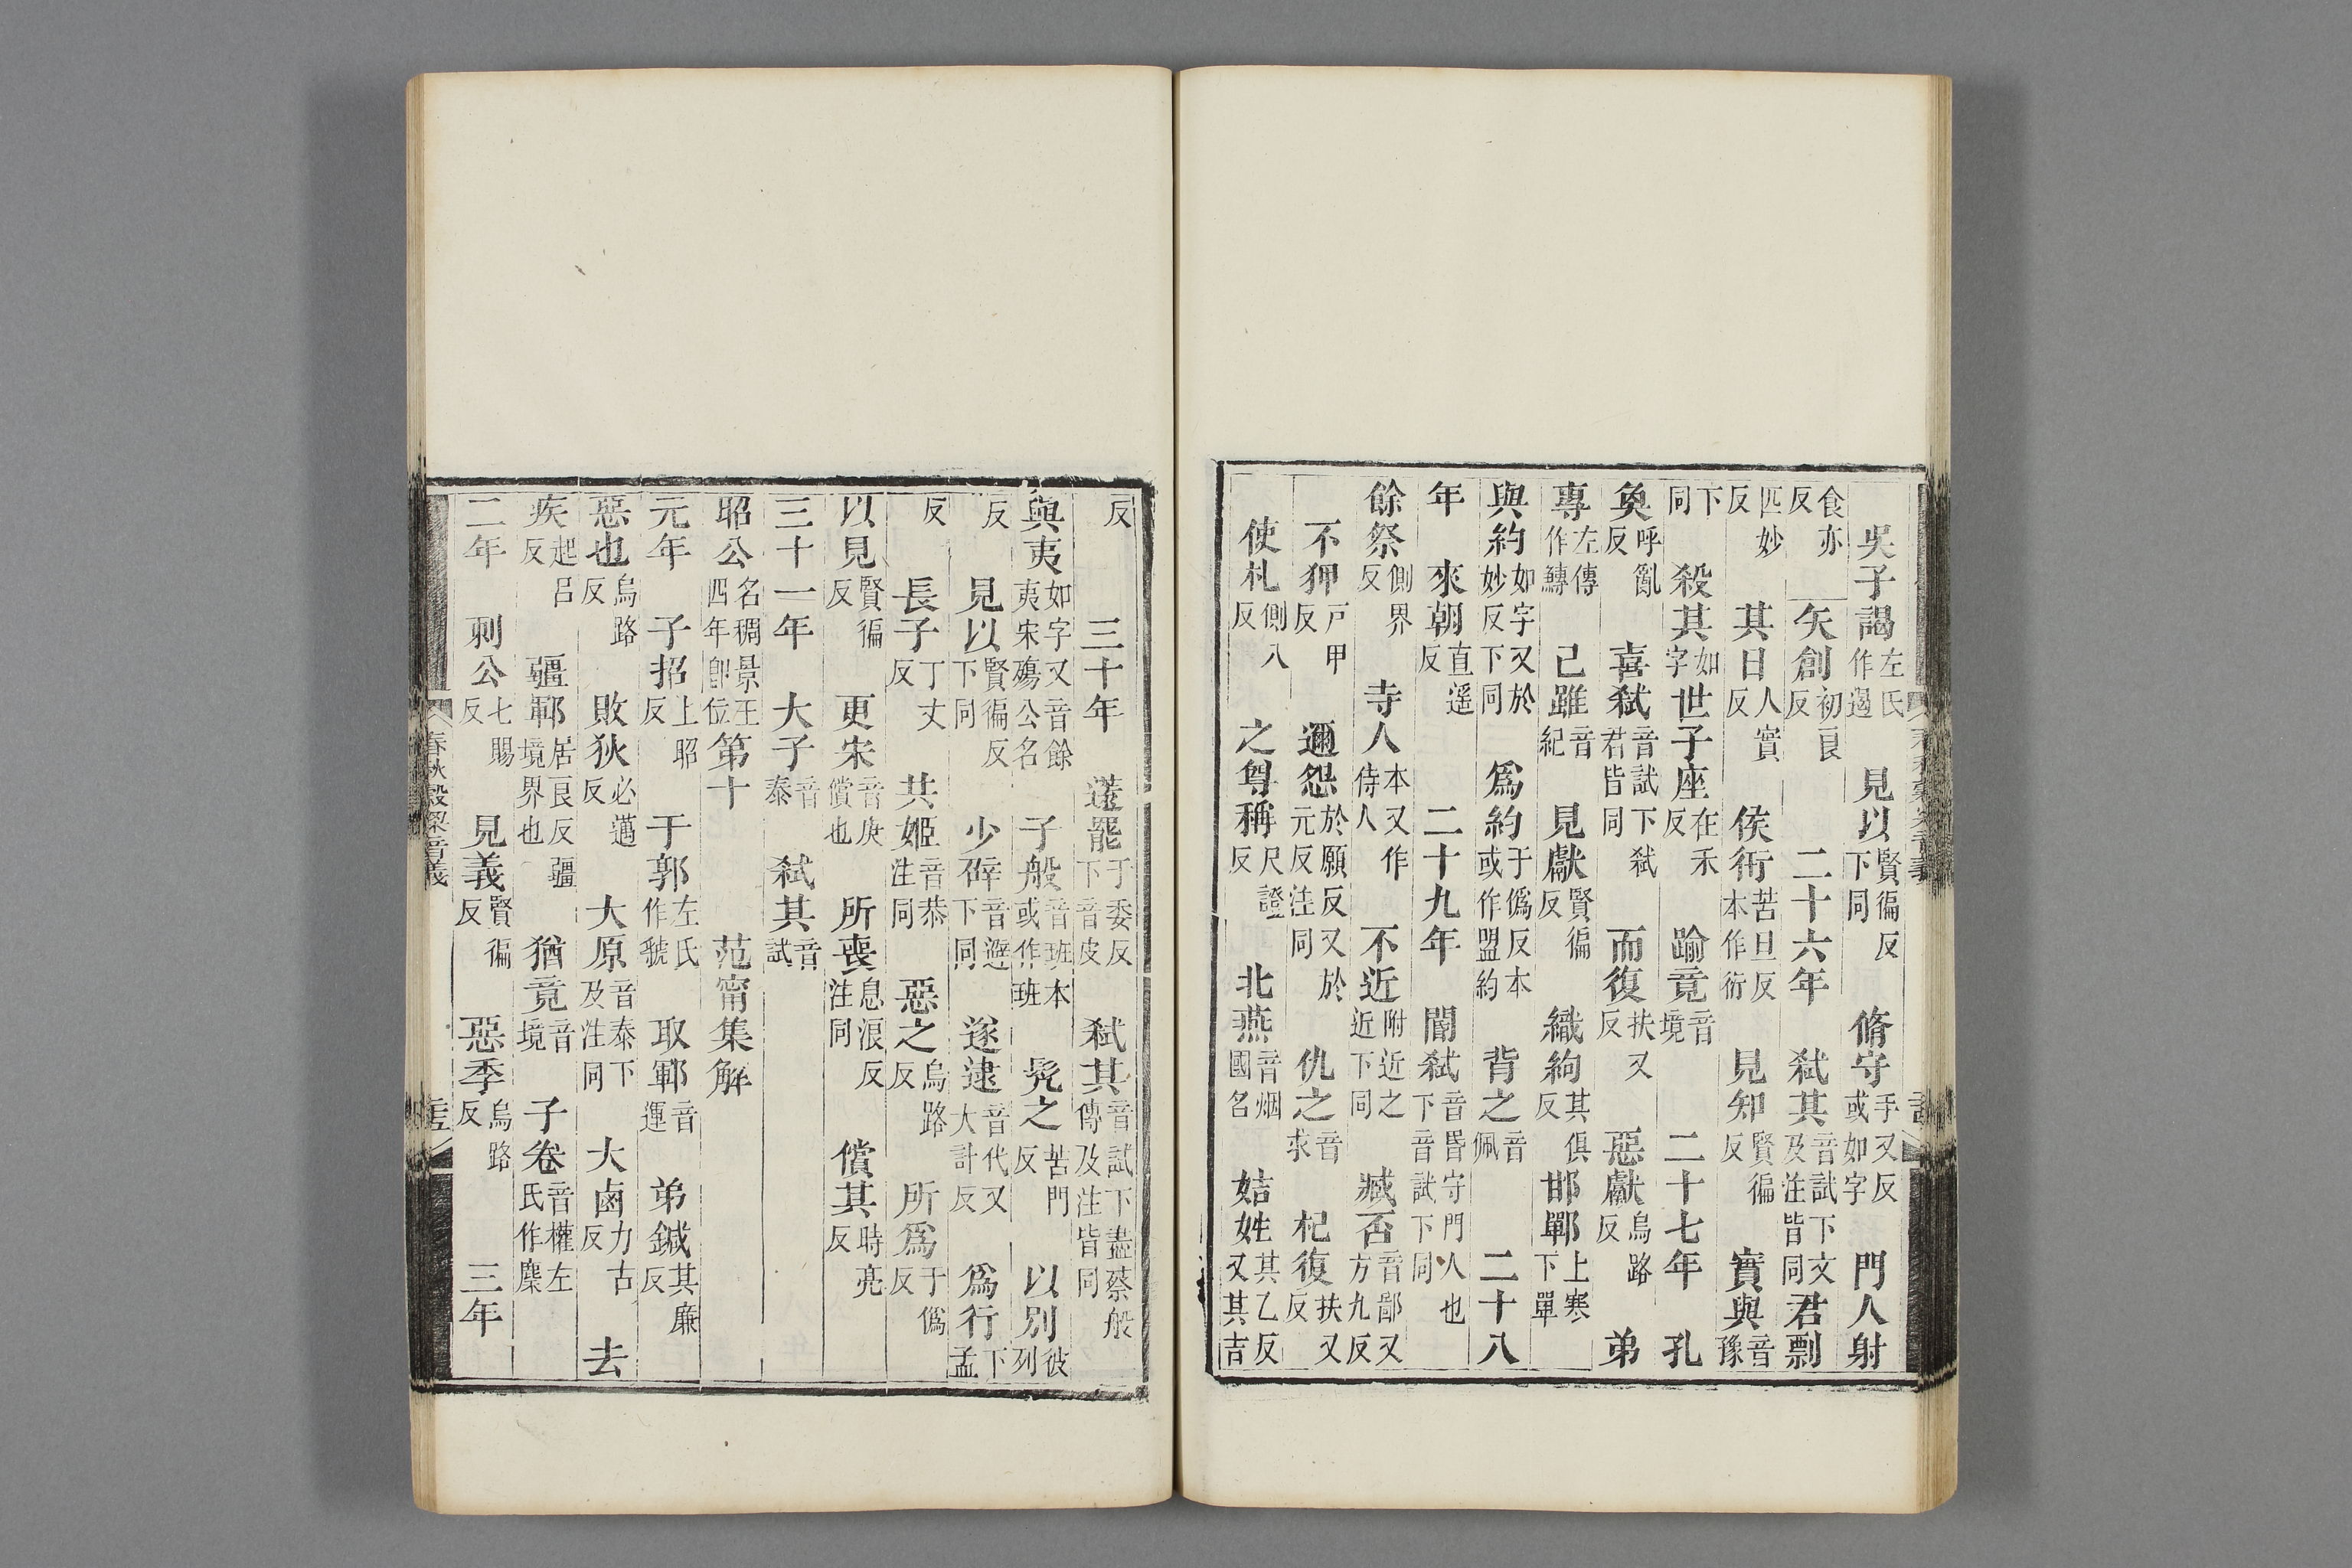 吳子謁左氏作遏　見以賢徧反下同　脩守手又反或如字　門人射
食亦反　矢創初良反　二十六年　弑其音試下文及注皆同　君剽
匹妙反　其日人實反　侯衎苦旦反本作衍　見知賢徧反　實與音豫
下同　殺其如字　世子座在禾反　踰竟音境　二十七年　孔
奐呼亂反　喜弑音試下弑君皆同　而復扶又反　惡獻烏路反　弟
專左傳作鱄　己雖音紀　見獻賢徧反　織絇其俱反　邯鄲上寒下單
與約如字又於妙反下同　爲約于僞反本或作盟約　背之音佩　二十八
年　來朝直遥反　二十九年　閽弑音昏守門人也下音試下同
餘祭側界反　寺人本又作侍人　不近附近之近下同　臧否音鄙又方九反
不狎戸甲反　邇怨於願反又於元反注同　仇之音求　杞復扶又反
使札側八反　之尊稱尺證反　北燕音烟國名　姞姓其乙反又其吉
反　三十年　薳罷于委反下音皮　弑其音試下盡蔡般傳及注皆同
與夷如字又音餘夷宋殤公名　子般音班本或作班　髡之苦門反　以別彼列
反　見以賢徧反下同　少辟音避下同　逐逮音代又大計反　爲行下孟
反　長子丁丈反　共姬音恭注同　惡之烏路反　所爲于僞反
以見賢徧反　更宋音庚償也　所喪息浪反注同　償其時亮反
三十一年　大子音泰　弑其音試
昭公名稠景王四年卽位第十　范甯集解
元年　子招上昭反　于郭左氏作虢　取鄆音運　弟鍼其廉反
惡也烏路反　敗狄必邁反　大原音泰下及注同　大鹵力古反　去
疾起呂反　疆鄆居良反疆境界也　猶竟音境　子卷音權左氏作麇
二年　刺公七賜反　見義賢徧反　惡季烏路反　三年
春秋穀梁音義